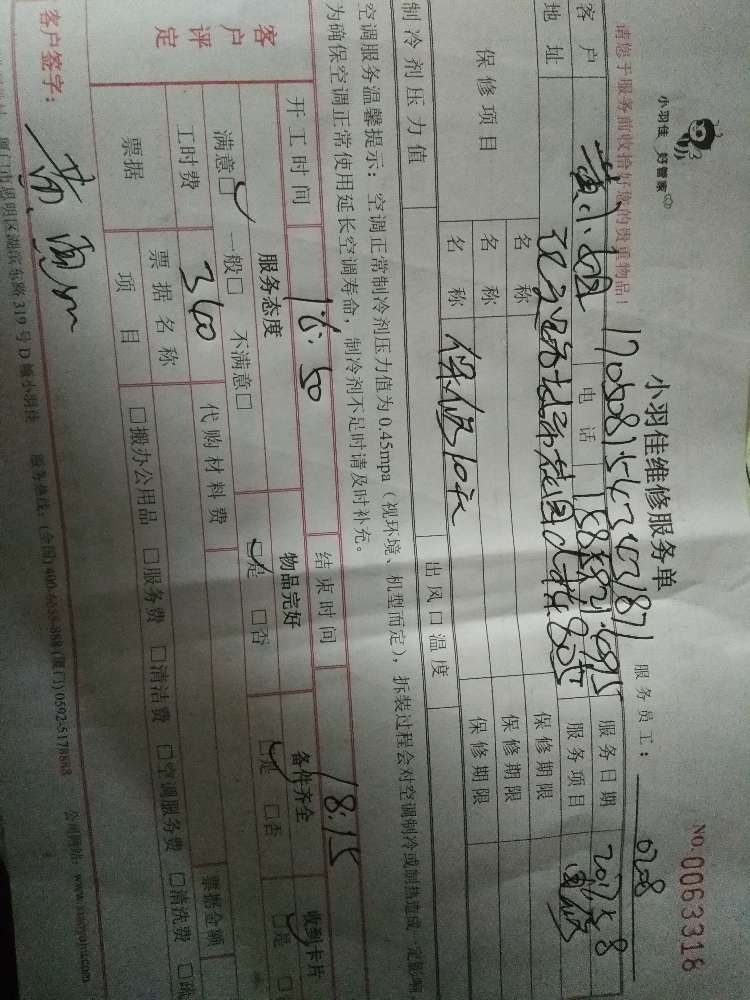 小羽佳 好管家
小羽佳维修服务单
NO. 0063318
请您于服务前收拾好您的贵重物品!
服务员工: 028
客户 黄小姐 电话 服务日期
地址 服务项目
保修项目 名称 保修期限
名称 保修期限
名称 保修10天 保修期限
制冷剂压力值 出风口温度
空调服务温馨提示:空调正常制冷剂压力值为0.45mpa(视环境、机型而定),拆装过程会对空调制冷或制热造成一定影响
为确保空调正常使用延长空调寿命,制冷剂不足时请及时补充。
开工时间 16:50 结束时间 18:15
客户评定 服务态度 物品完好 备件齐全 收到卡片
满意□ 一般□ 不满意□ □是 □否 □是 □否 □是
工时费 340 代购材料费 票据金额
票据 票据名称
项目 □搬办公用品 □服务费 □清洁费 □空调服务费 □清洗费
客户签字:
厦门市思明区湖滨东路319号D幢小羽佳 服务热线:(全国) (厦门)0592-5178888 公司网站: